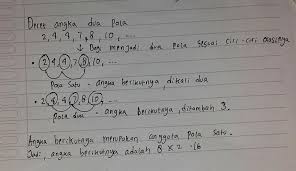 Deret angka dua pola
2, 4, 4, 7, 8, 10, ...
↓ Bagi menjadi dua pola sesuai ciri-ciri
• 2, 4, 4, 7, 8, 10, ...
Pola satu - angka berikutnya, dikali dua
• 2, 4, 4, 7, 8, 10, ...
Pola dua - angka berikutnya, ditambah 3.
Angka berikutnya merupakan anggota pola satu.
Jadi, angka berikutnya adalah 8 x 2 = 16